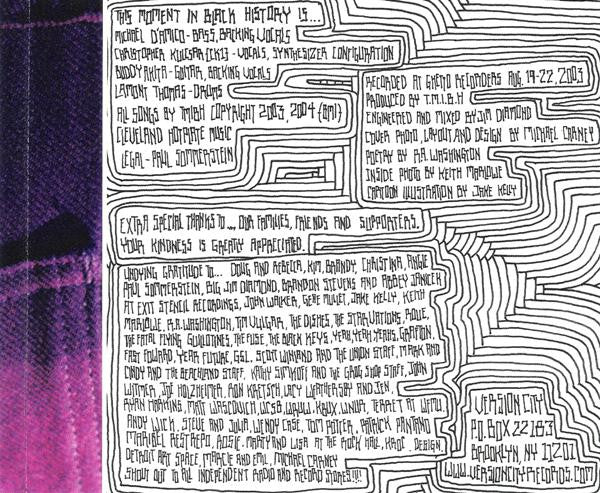 THIS MOMENT IN BLACK HISTORY IS...
MICHAEL D'AMICO - BASS, BACKING VOCALS
CHRISTOPHER KULCSAR [CK1] - VOCALS, SYNTHESIZER CONFIGURATION
BUDDY AKITA - GUITAR, BACKING VOCALS
LAMONT THOMAS - DRUMS
ALL SONGS BY TMIBH COPYRIGHT 2003, 2004 (BMI)
CLEVELAND HOTPLATE MUSIC
LEGAL - PAUL SOMMERSTEIN
RECORDED AT GHETTO RECORDERS AUG. 19-22, 2003
PRODUCED BY T.M.I.B.H
ENGINEERED AND MIXED BY JIM DIAMOND
COVER PHOTO, LAYOUT AND DESIGN BY MICHAEL CRANEY
POETRY BY A.R. WASHINGTON
INSIDE PHOTO BY KEITH MARLOWE
CARTOON ILLUSTRATION BY JAKE KELLY
EXTRA SPECIAL THANKS TO ... OUR FAMILIES, FRIENDS AND SUPPORTERS.
YOUR KINDNESS IS GREATLY APPRECIATED.
UNDYING GRATITUDE TO... DOUG AND REBECCA, KIM, BRANDY, CHRISTINA, ANGIE
PAUL SOMMERSTEIN, BIG JIM DIAMOND, BRANDON STEVENS AND ABBEY JANICEK
AT EXIT STENCIL RECORDINGS, JOHN WALKER, GENE MULLET, JAKE KELLY, KEITH
MARLOWE, A.R. WASHINGTON, TIM VULGAR, THE DISHES, THE STARVATIONS,
THE FATAL FLYING GUILLOTINES, THE FUSE, THE BLACK KEYS, YEAH YEAH YEAHS, GRAFTON,
FAST FOWARD, YEAR FUTURE, GSL, SCOTT WINLAND AND THE UNION STAFF, MARK AND
CINDY AND THE BEACHLAND STAFF, KATHY SIMKOFF AND THE GROG SHOP STAFF, JOHN
WITTMER, JOE HOLZHEIMER, RON KRETSCH, LACY WEATHERSBY AND JEN,
RYAN HARKINS, MATT WASCOVICH, WCSB, WRUW, KBUX, WNUR, TERRET AT WFMU,
ANDY WICK, STEVE AND JULIA, WENDY CASE, TOM POTTER, PATRICK PANTANO
MARIBEL RESTREPO, ROSIE, MARTY AND LISA AT THE ROCK HALL, KAOC, DESIGN,
DETROIT ART SPACE, MARCIE AND EMIL, MICHAEL CRANEY
SHOUT OUT TO ALL INDEPENDENT RADIO AND RECORD STORES!!!!
VERSION CITY
P.O. BOX 22163
BROOKLYN, NY 11201
WWW.VERSIONCITYRECORDS.COM